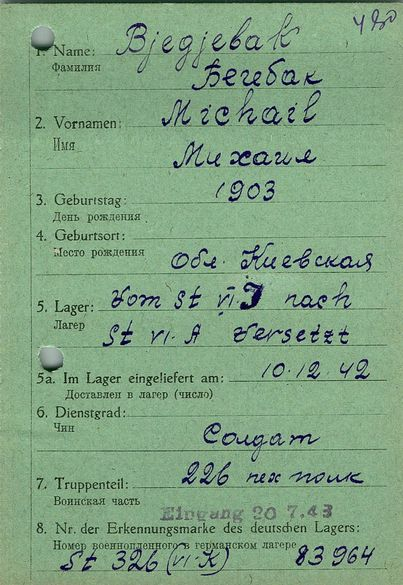 480
1. Name: Bjedjebak
Фамилия Бегебак
2. Vornamen: Michail
Имя Михаил
3. Geburtstag: 1903
День рождения
4. Geburtsort:
Место рождения Обл. Киевская
5. Lager: Vom St VI J nach
Лагер St VI. A Versetzt
5a. Im Lager eingeliefert am: 10.12.42
Доставлен в лагер (число)
6. Dienstgrad:
Чин Солдат
7. Truppenteil: 226 пех полк
Воинская часть
Eingang 20 7.43
8. Nr. der Erkennungsmarke des deutschen Lagers:
Номер военнопленного в германском лагере
St 326 (VI-K) 83964